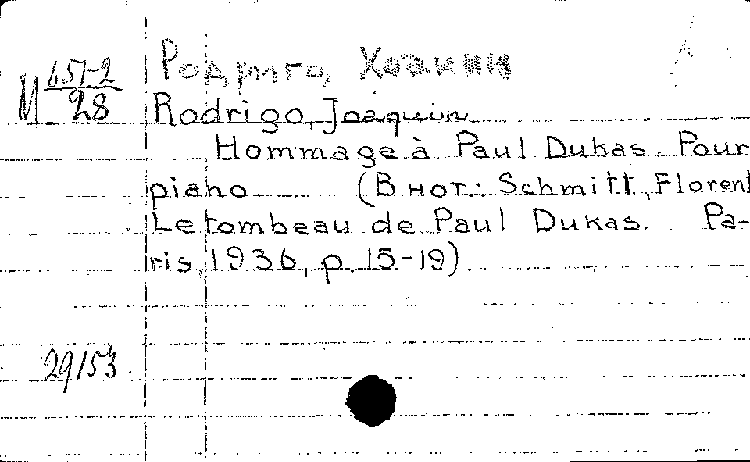 Родриго, Хоакин
М 457-2/28
Rodrigo, Joaquin
Hommage à Paul Dukas. Pour
piano (В нот: Schmitt, Florent
Le tombeau de Paul Dukas. Pa-
ris, 1936, p. 15-19)
29153